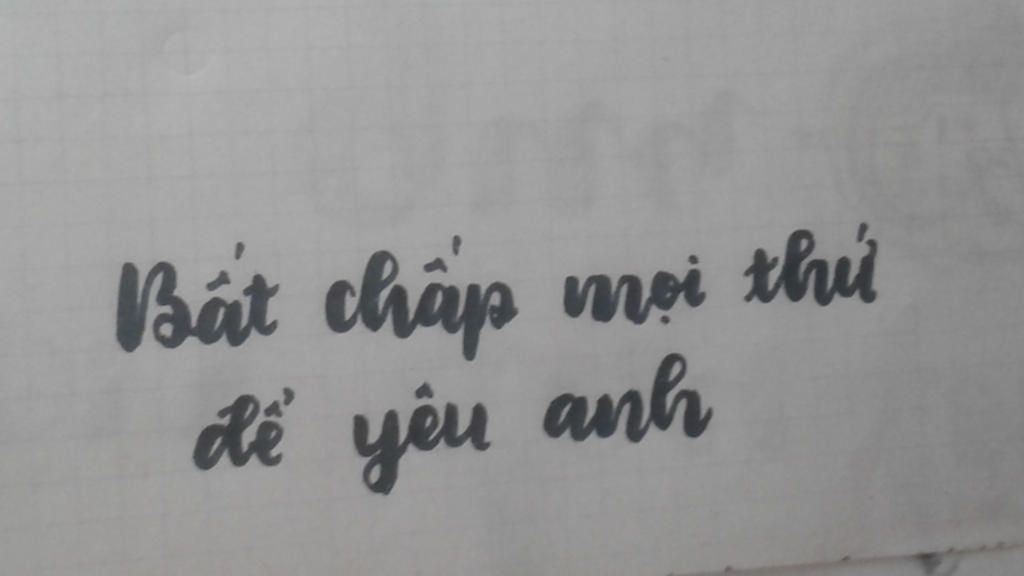 Bất chấp mọi thứ
để yêu anh